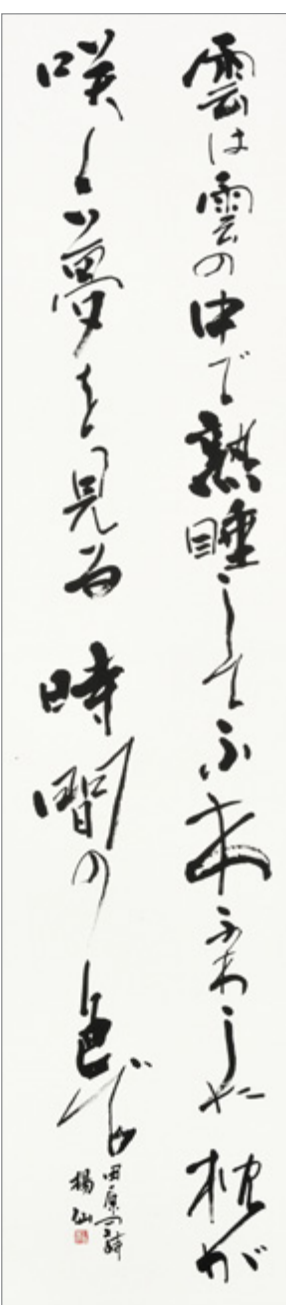 雲は雲の中で熟睡してふわふわした枕が
しい夢を見る 時間の色です
田原 詩
楊仙